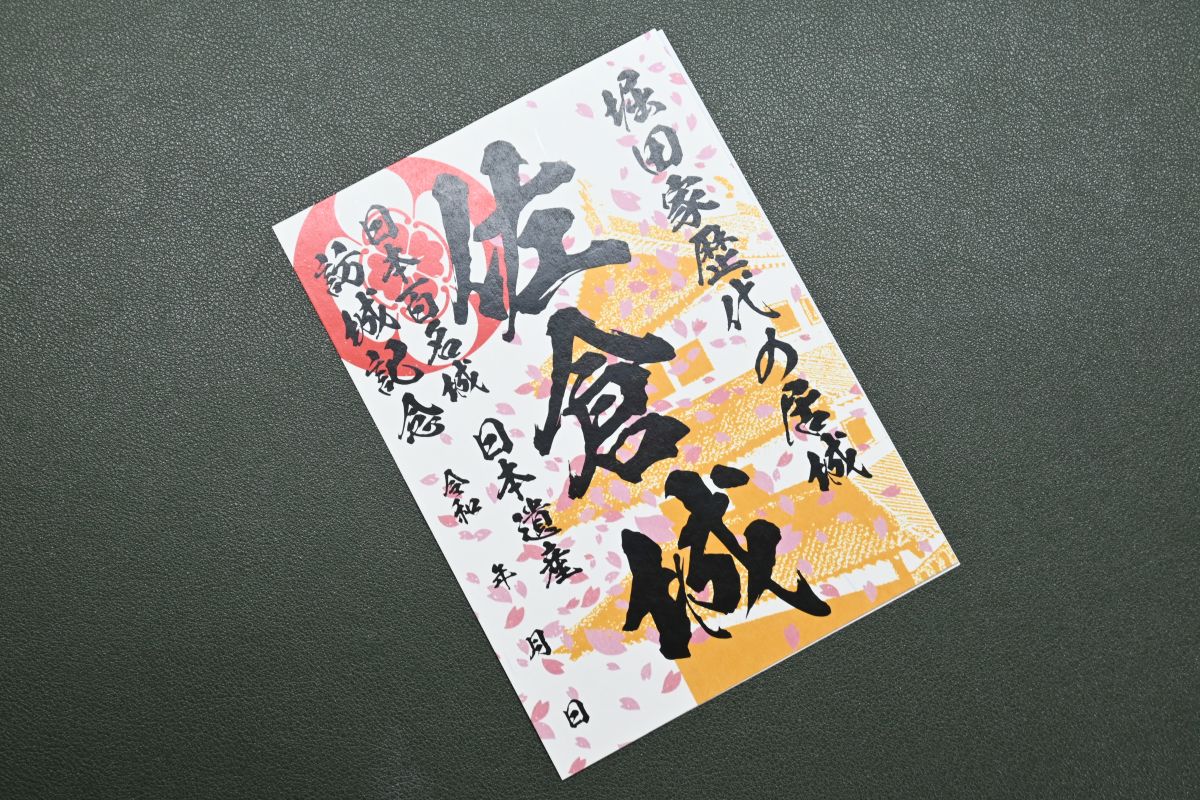 堀田家歴代の居城
佐倉城
日本百名城
日本遺産
訪城記念
令和 年 月 日